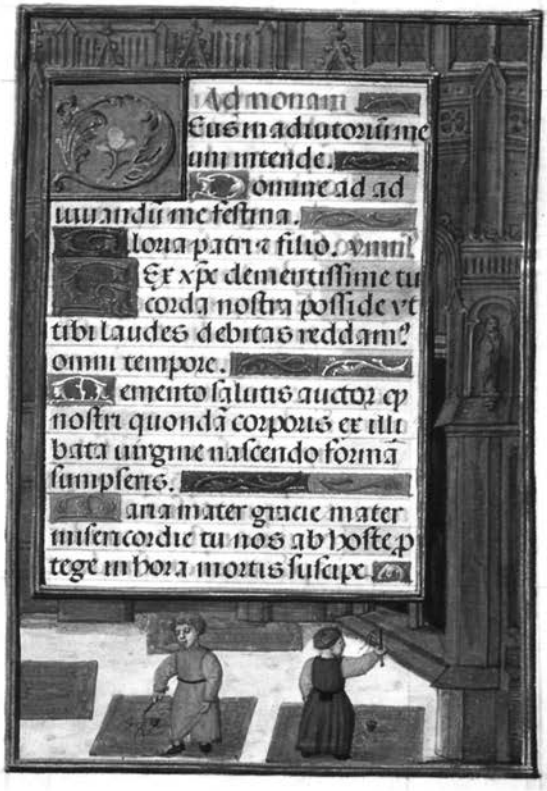 Ad nonam
Deus in adiutoriū me
um intende.
Domine ad ad
iuuandū me festina.
Gloria patri ⁊ filio.
Rex xp̄e clementissime tu
corda nostra posside vt
tibi laudes debitas reddam⁹
omni tempore.
Memento salutis auctor ꝙ
nostri quondā corporis ex illi
bata uirgine nascendo formā
sumpseris.
Maria mater gracie mater
misericordie tu nos ab hoste ꝓ
tege in hora mortis suscipe